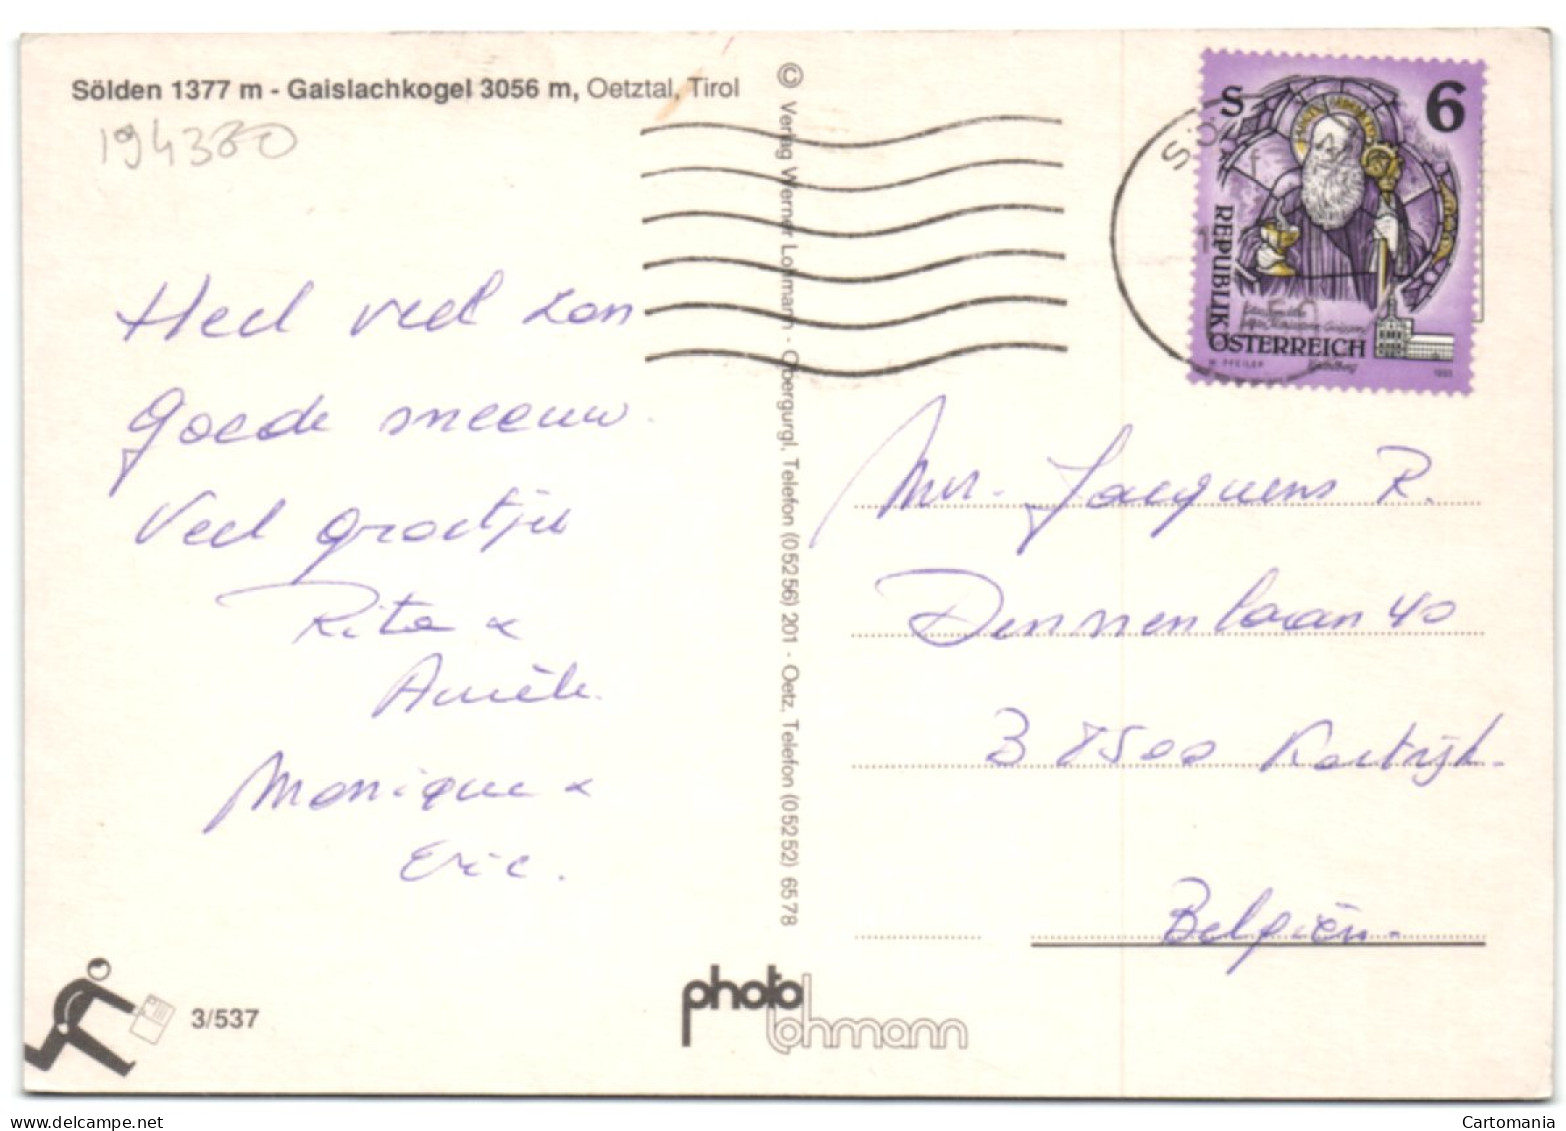 Sölden 1377 m - Gaislachkogel 3056 m, Oetztal, Tirol
194380
Heel veel zon
goede sneeuw.
Veel groetjes
Rita &
Aurèle.
Monique &
Eric.
3/537
© Verlag Werner Lohmann - Obergurgl, Telefon (05256) 201 - Oetz, Telefon (05252) 6578
photo
lohmann
S 6
REPUBLIK
ÖSTERREICH
W. PFEILER
1993
SÖ
Mr. Jacquens R.
Dennenlaan 40
B 8500 Kortrijk.
Belgiën.
www.delcampe.net
Cartomania